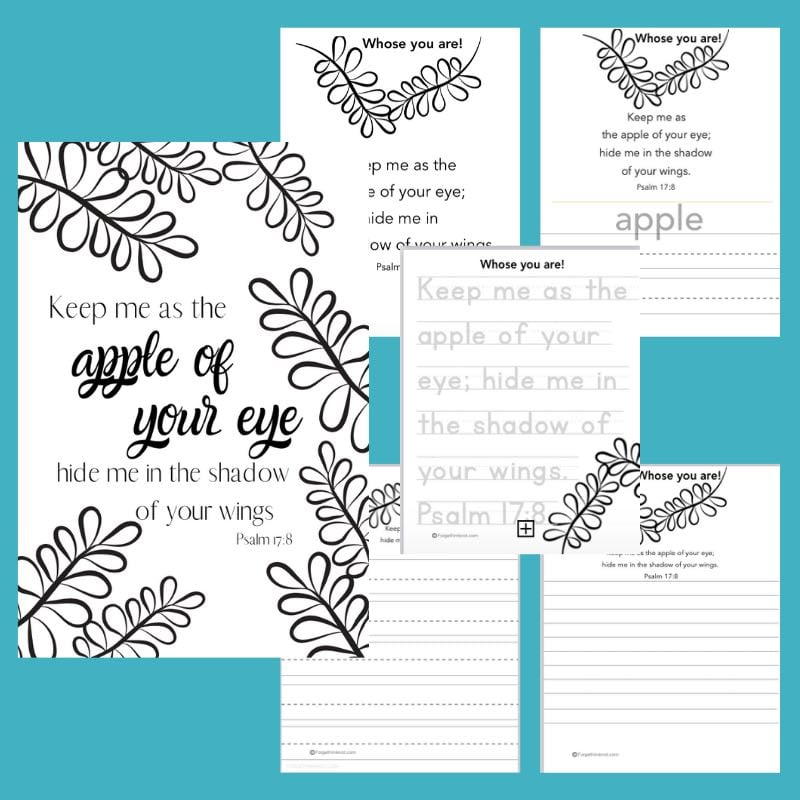 Whose you are!
ep me as the
e of your eye;
hide me in
ow of your wings
Psalm
Whose you are!
Keep me as
the apple of your eye;
hide me in the shadow
of your wings.
Psalm 17:8
apple
Keep me as the
apple of
your eye
hide me in the shadow
of your wings
Psalm 17:8
Whose you are!
Keep me as the
apple of your
eye; hide me in
the shadow of
your wings.
Psalm 17:8
©Forgethimknot.com
Keep
hide me
©Forgethimknot.com
Whose you are!
Keep me as the apple of your eye;
hide me in the shadow of your wings.
Psalm 17:8
©Forgethimknot.com